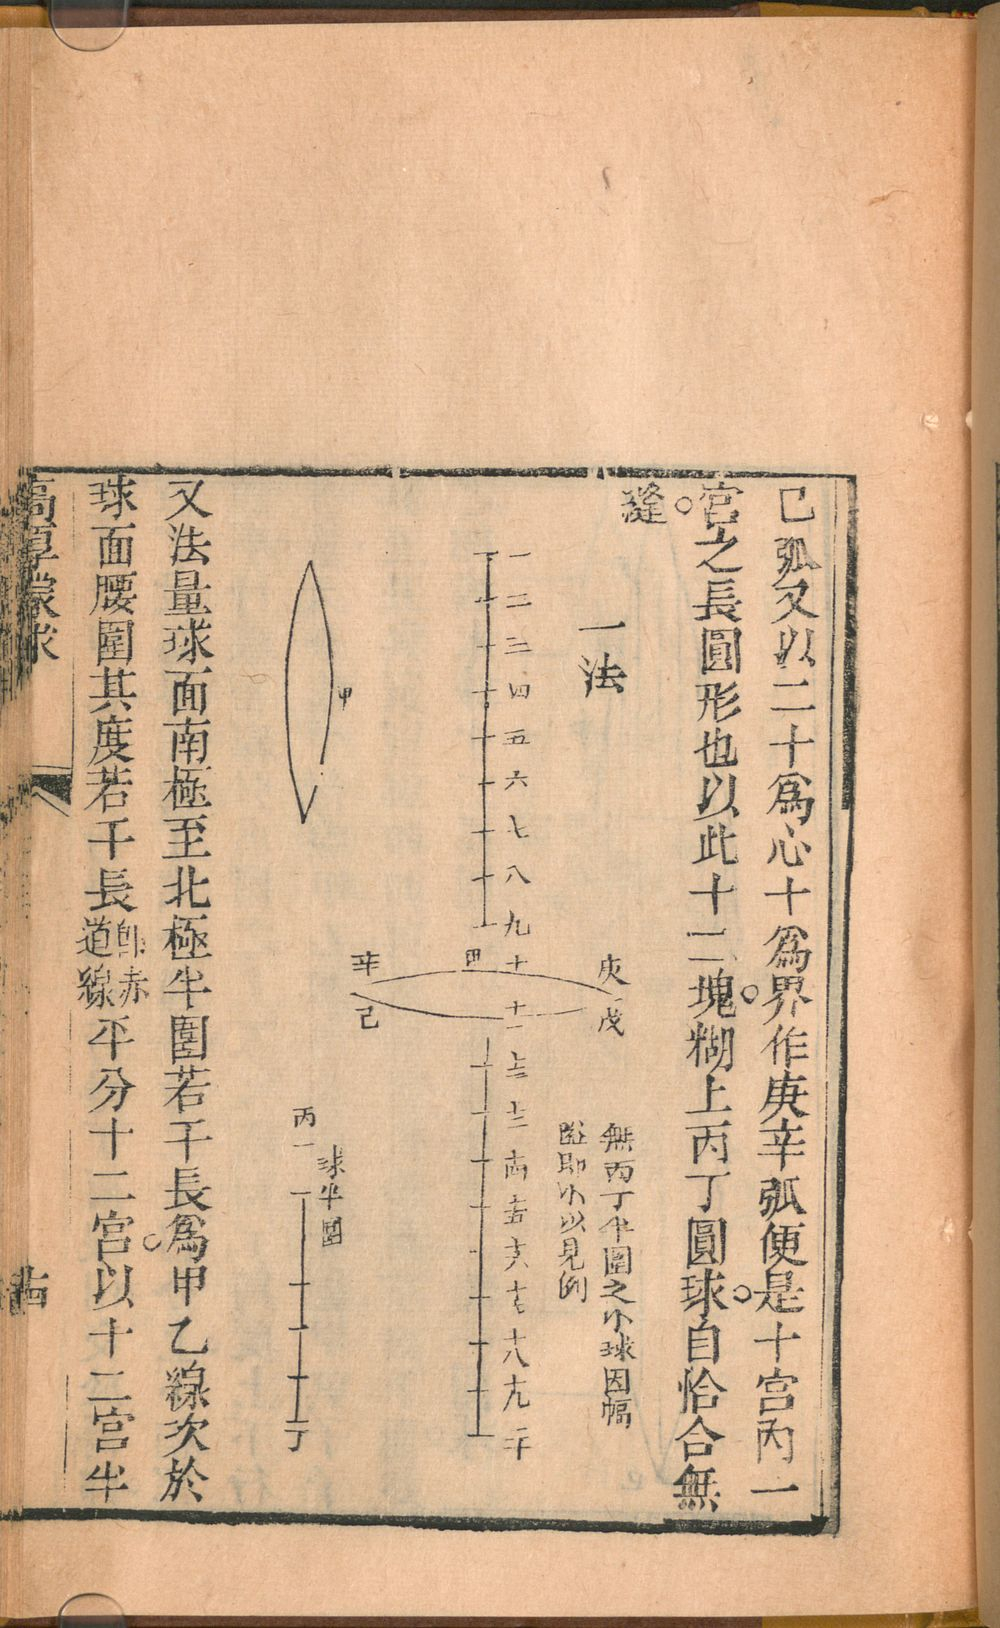 己弧又以二十爲心十爲界作庚辛弧便是十宮內一
宮之長圓形也以此十二塊糊上丙丁圓球自恰合無
縫
一法
無丙丁半圍之小球因幅
臨即小以見例
庚
戊
一
二
三
四
五
六
七
八
九
十
十一
十二
十三
十四
十五
十六
十七
十八
十九
二十
甲
辛
己
甲
球半圍
丙
丁
又法量球面南極至北極半圍若干長爲甲乙線次於
球面腰圍其度若干長卽赤道線平分十二宮以十二宮半
高厚蒙求